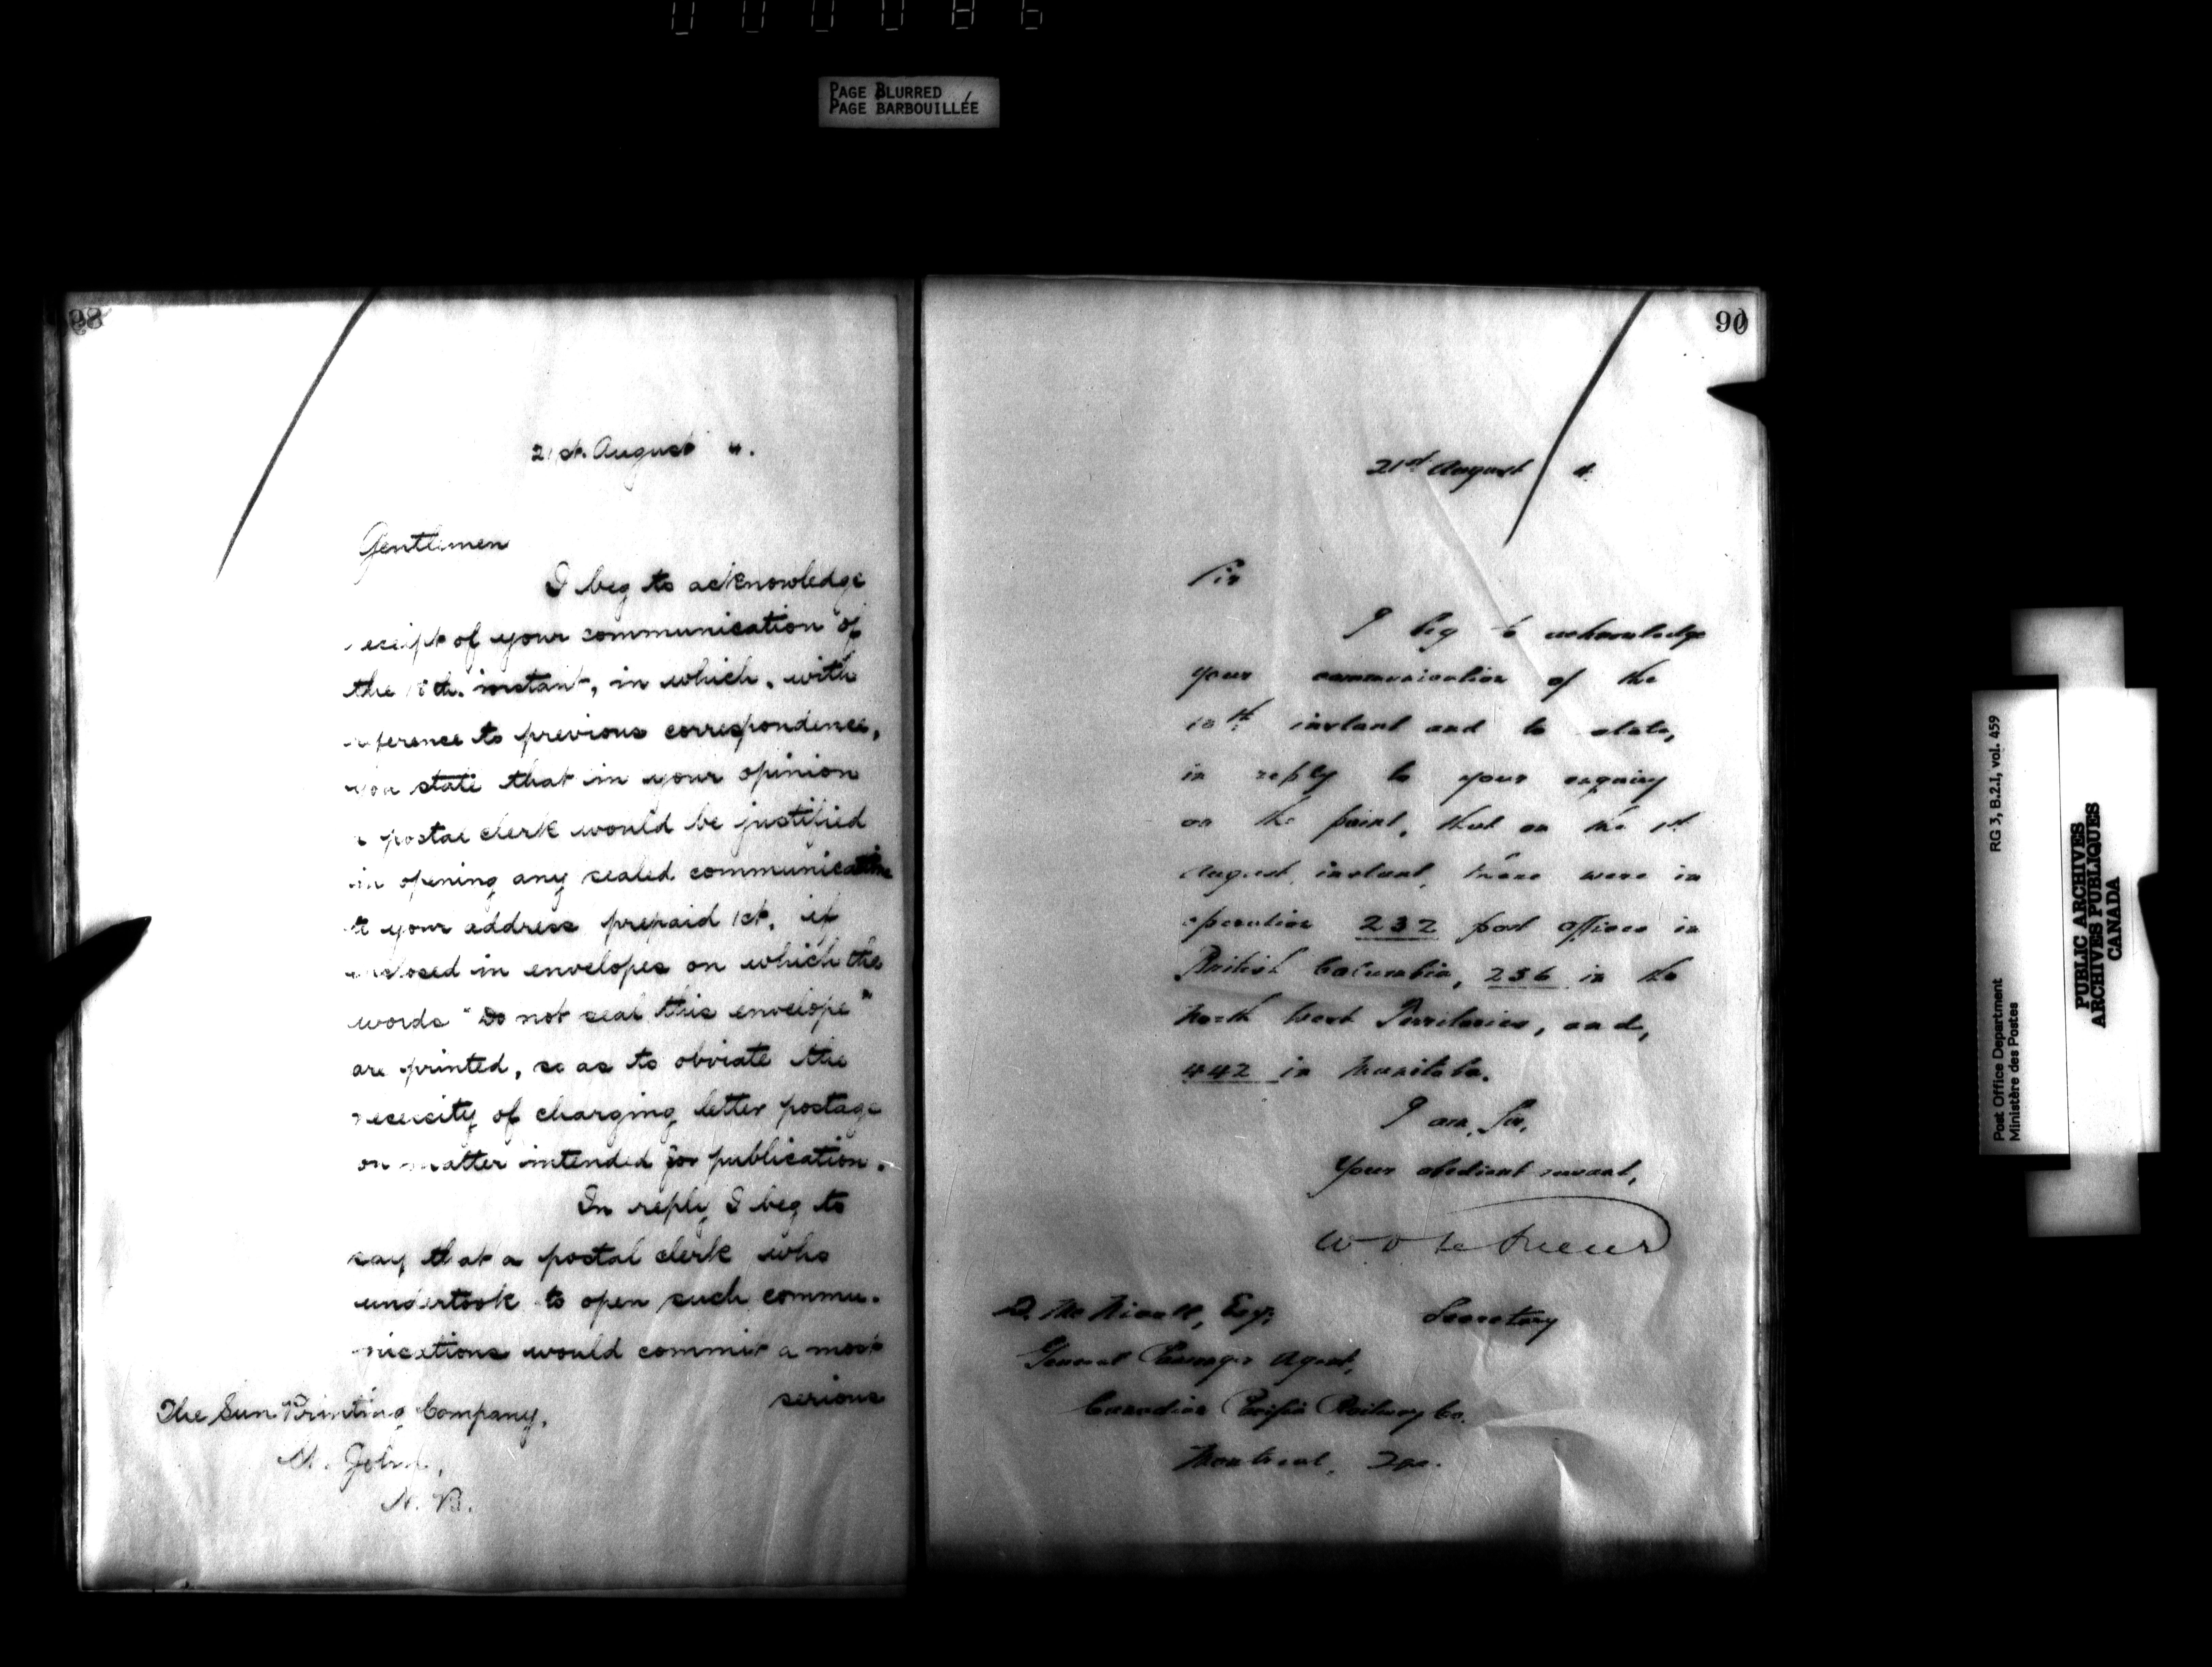 000086
PAGE BLURRED
PAGE BARBOUILLÉE
21st August 4.
Gentlemen
I beg to acknowledge
receipt of your communication of
the 18th. instant, in which, with
reference to previous correspondence,
you state that in your opinion
a postal clerk would be justified
in opening any sealed communication
to your address prepaid 1ct. if
enclosed in envelopes on which the
words "Do not seal this envelope"
are printed, so as to obviate the
necessity of charging letter postage
on matter intended for publication.
In reply I beg to
say that a postal clerk who
undertook to open such commu-
nications would commit a most
serious
The Sun Printing Company,
St. John,
N. B.
90
21st August 4.
Sir
I beg to acknowledge
your communication of the
instant and to state,
in reply to your enquiry
on the point, that on the 1st
August instant, there were in
operation 232 post offices in
British Columbia, 236 in the
North West Territories, and,
442 in Manitoba.
I am, Sir,
Your obedient servant,
Secretary
D. McNicoll, Esq,
General Passenger Agent,
Canadian Pacific Railway Co.
Montreal, Que.
Post Office Department
Ministère des Postes
RG 3, B.2.I, vol. 459
PUBLIC ARCHIVES
ARCHIVES PUBLIQUES
CANADA